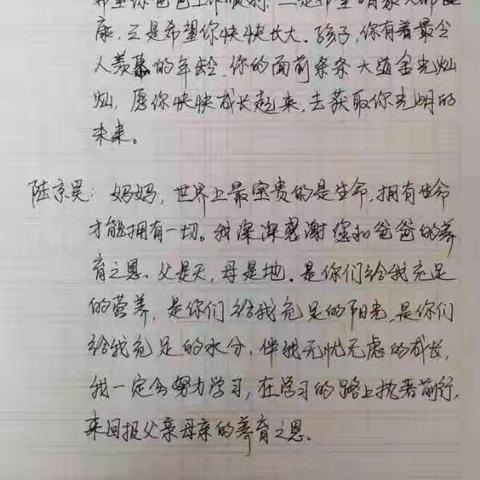 希望你爸爸工作顺利；二是希望咱家人都健
康，三是希望你快快长大。孩子，你有着最令
人羡慕的年龄，你的面前条条大道金光灿
灿，愿你快快成长起来，去获取你光明的
未来。
陆京昊：妈妈，世界上最宝贵的是生命，拥有生命
才能拥有一切。我深深感谢您和爸爸的养
育之恩。父是天，母是地。是你们给我充足
的营养，是你们给我充足的阳光，是你们
给我充足的水分，伴我无忧无虑的成长，
我一定会努力学习，在学习的路上执著前行，
来回报父亲母亲的养育之恩。